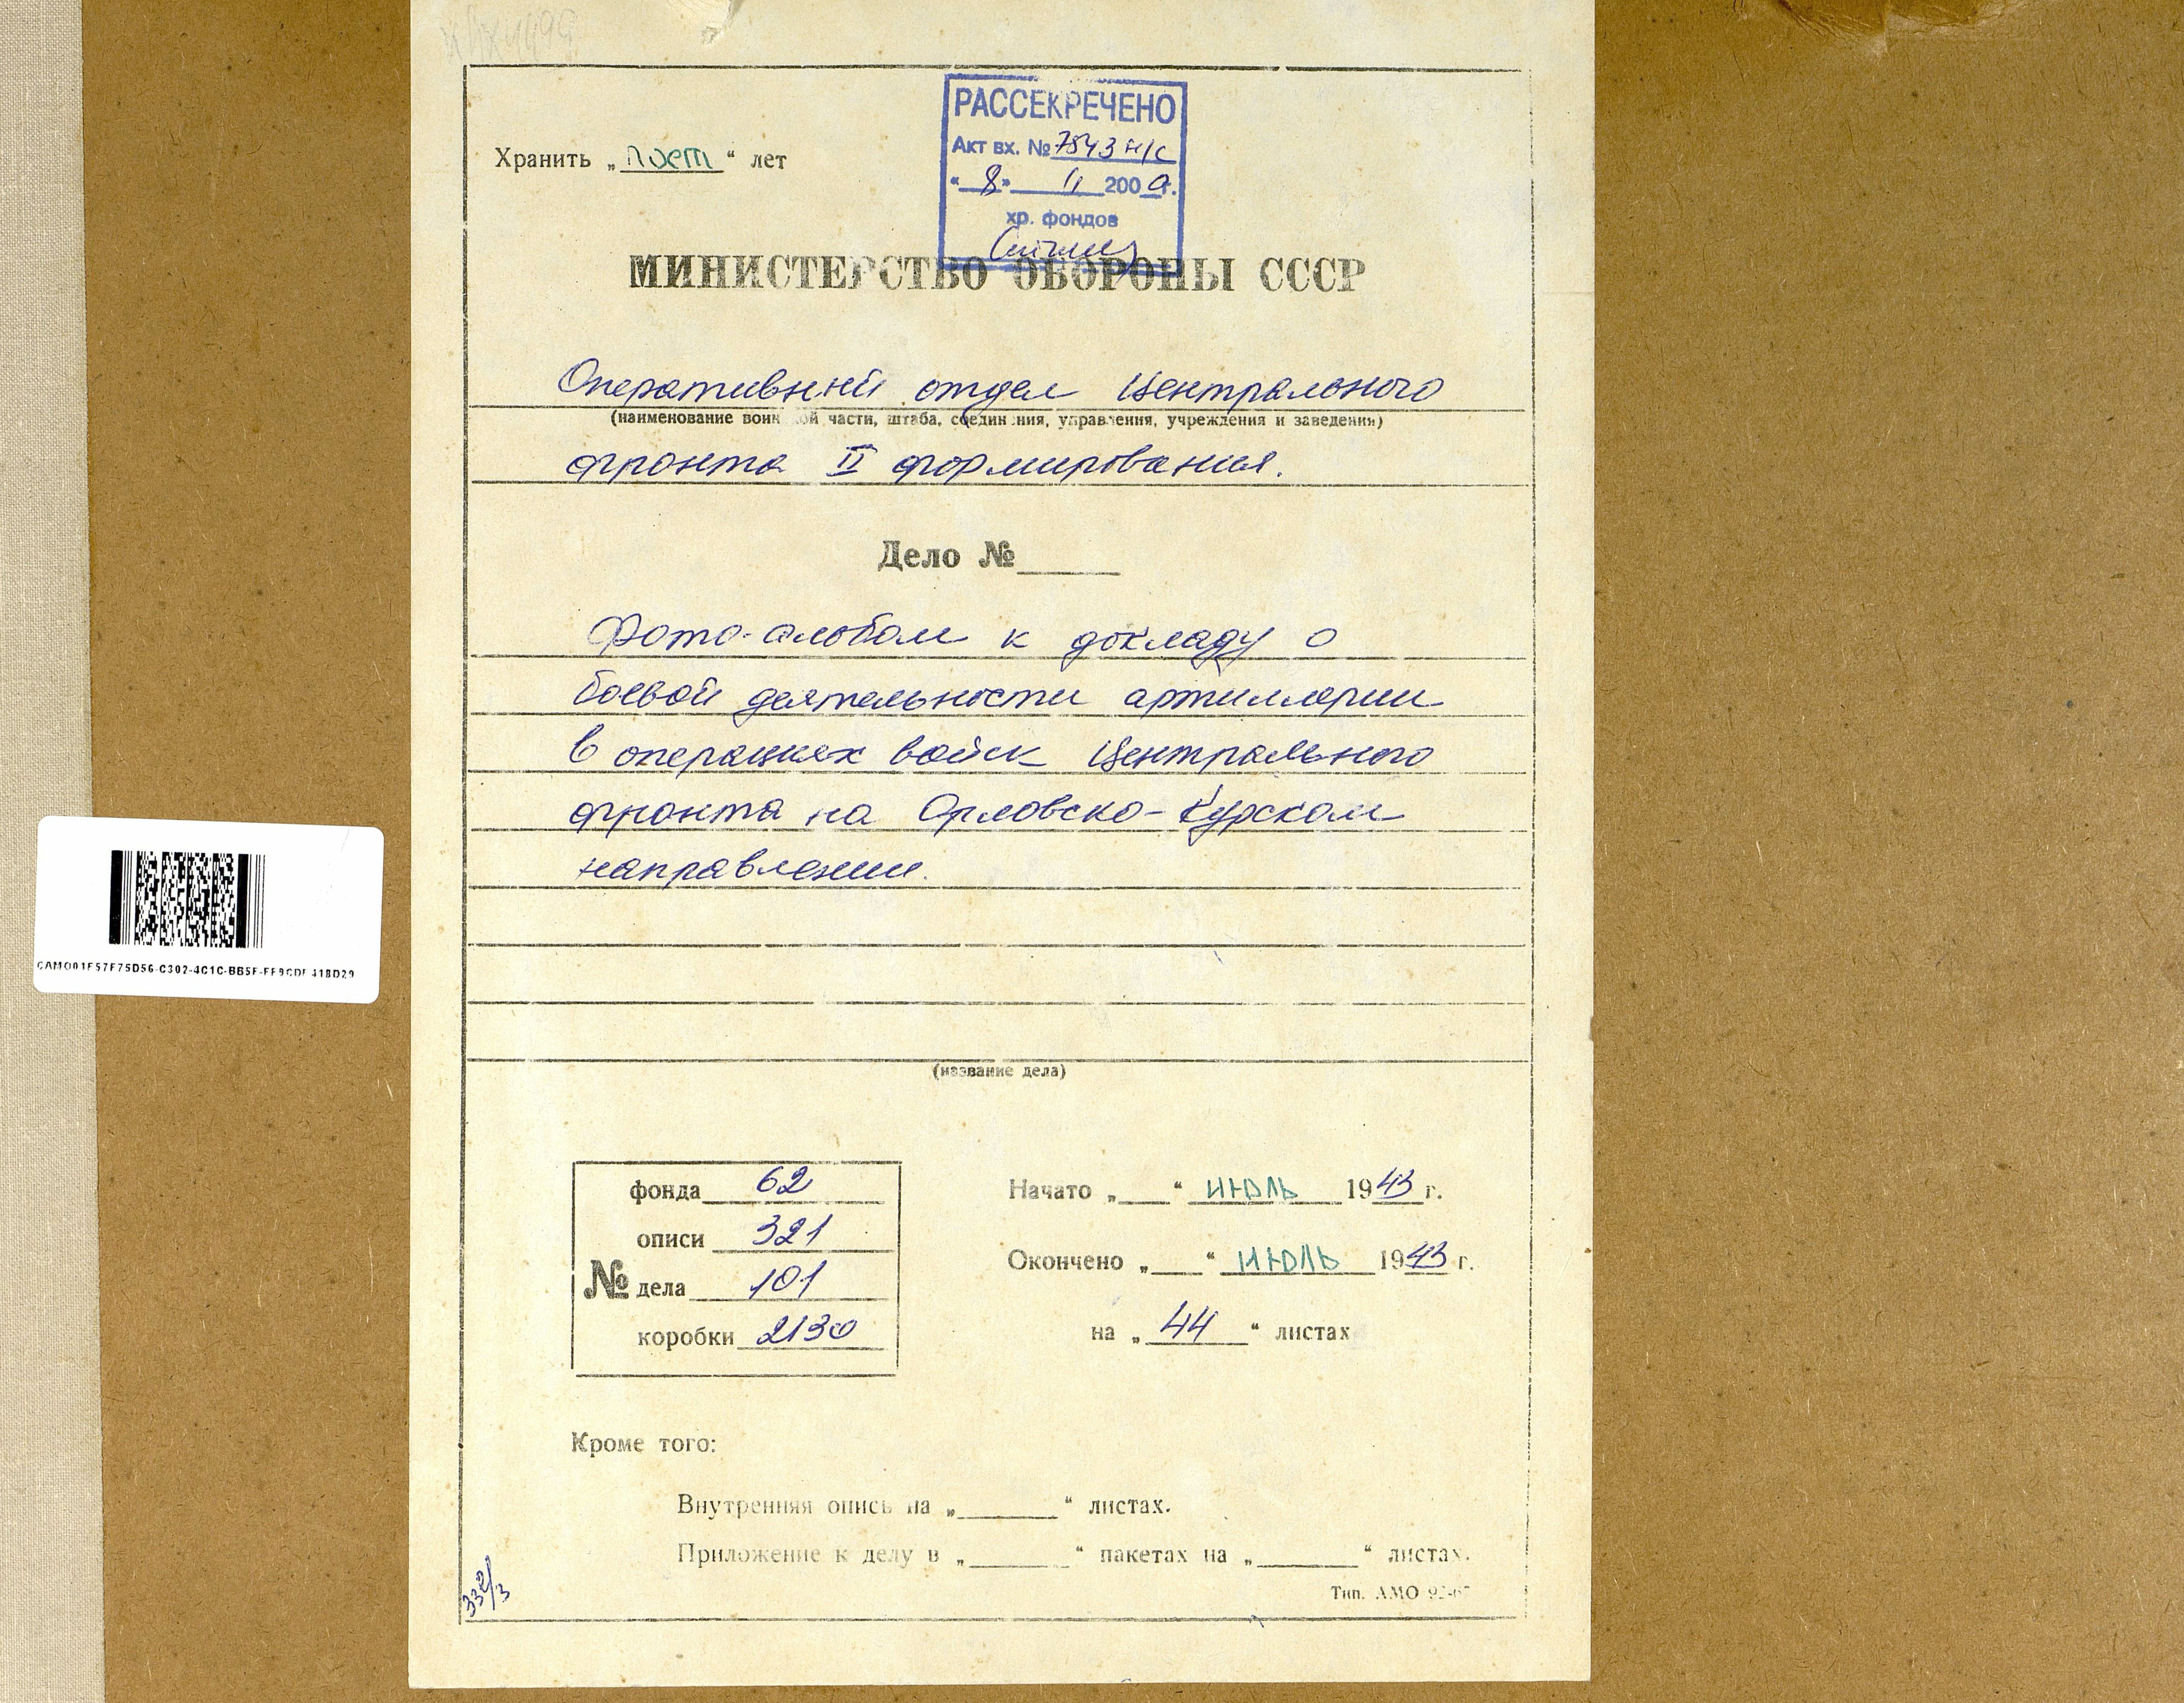 РАССЕКРЕЧЕНО
Хранить „пост“ лет
Акт вх. № 7543 н/с
«8» 11 200 г.
хр. фондов
МИНИСТЕРСТВО ОБОРОНЫ СССР
Оперативный отдел Центрального
(наименование воинской части, штаба, соединения, управления, учреждения и заведения)
фронта II формирования.
Дело №
Фото-альбом к докладу о
боевой деятельности артиллерии
в операциях войск Центрального
фронта на Орловско-Курском
направлении.
(название дела)
№
фонда 62
описи 321
дела 101
коробки 2130
Начато „ “ июль 1943 г.
Окончено „ “ июль 1943 г.
на „44“ листах
Кроме того:
Внутренняя опись на „ “ листах.
Приложение к делу в „ “ пакетах на „ “ листах.
Тип. АМО
332/3